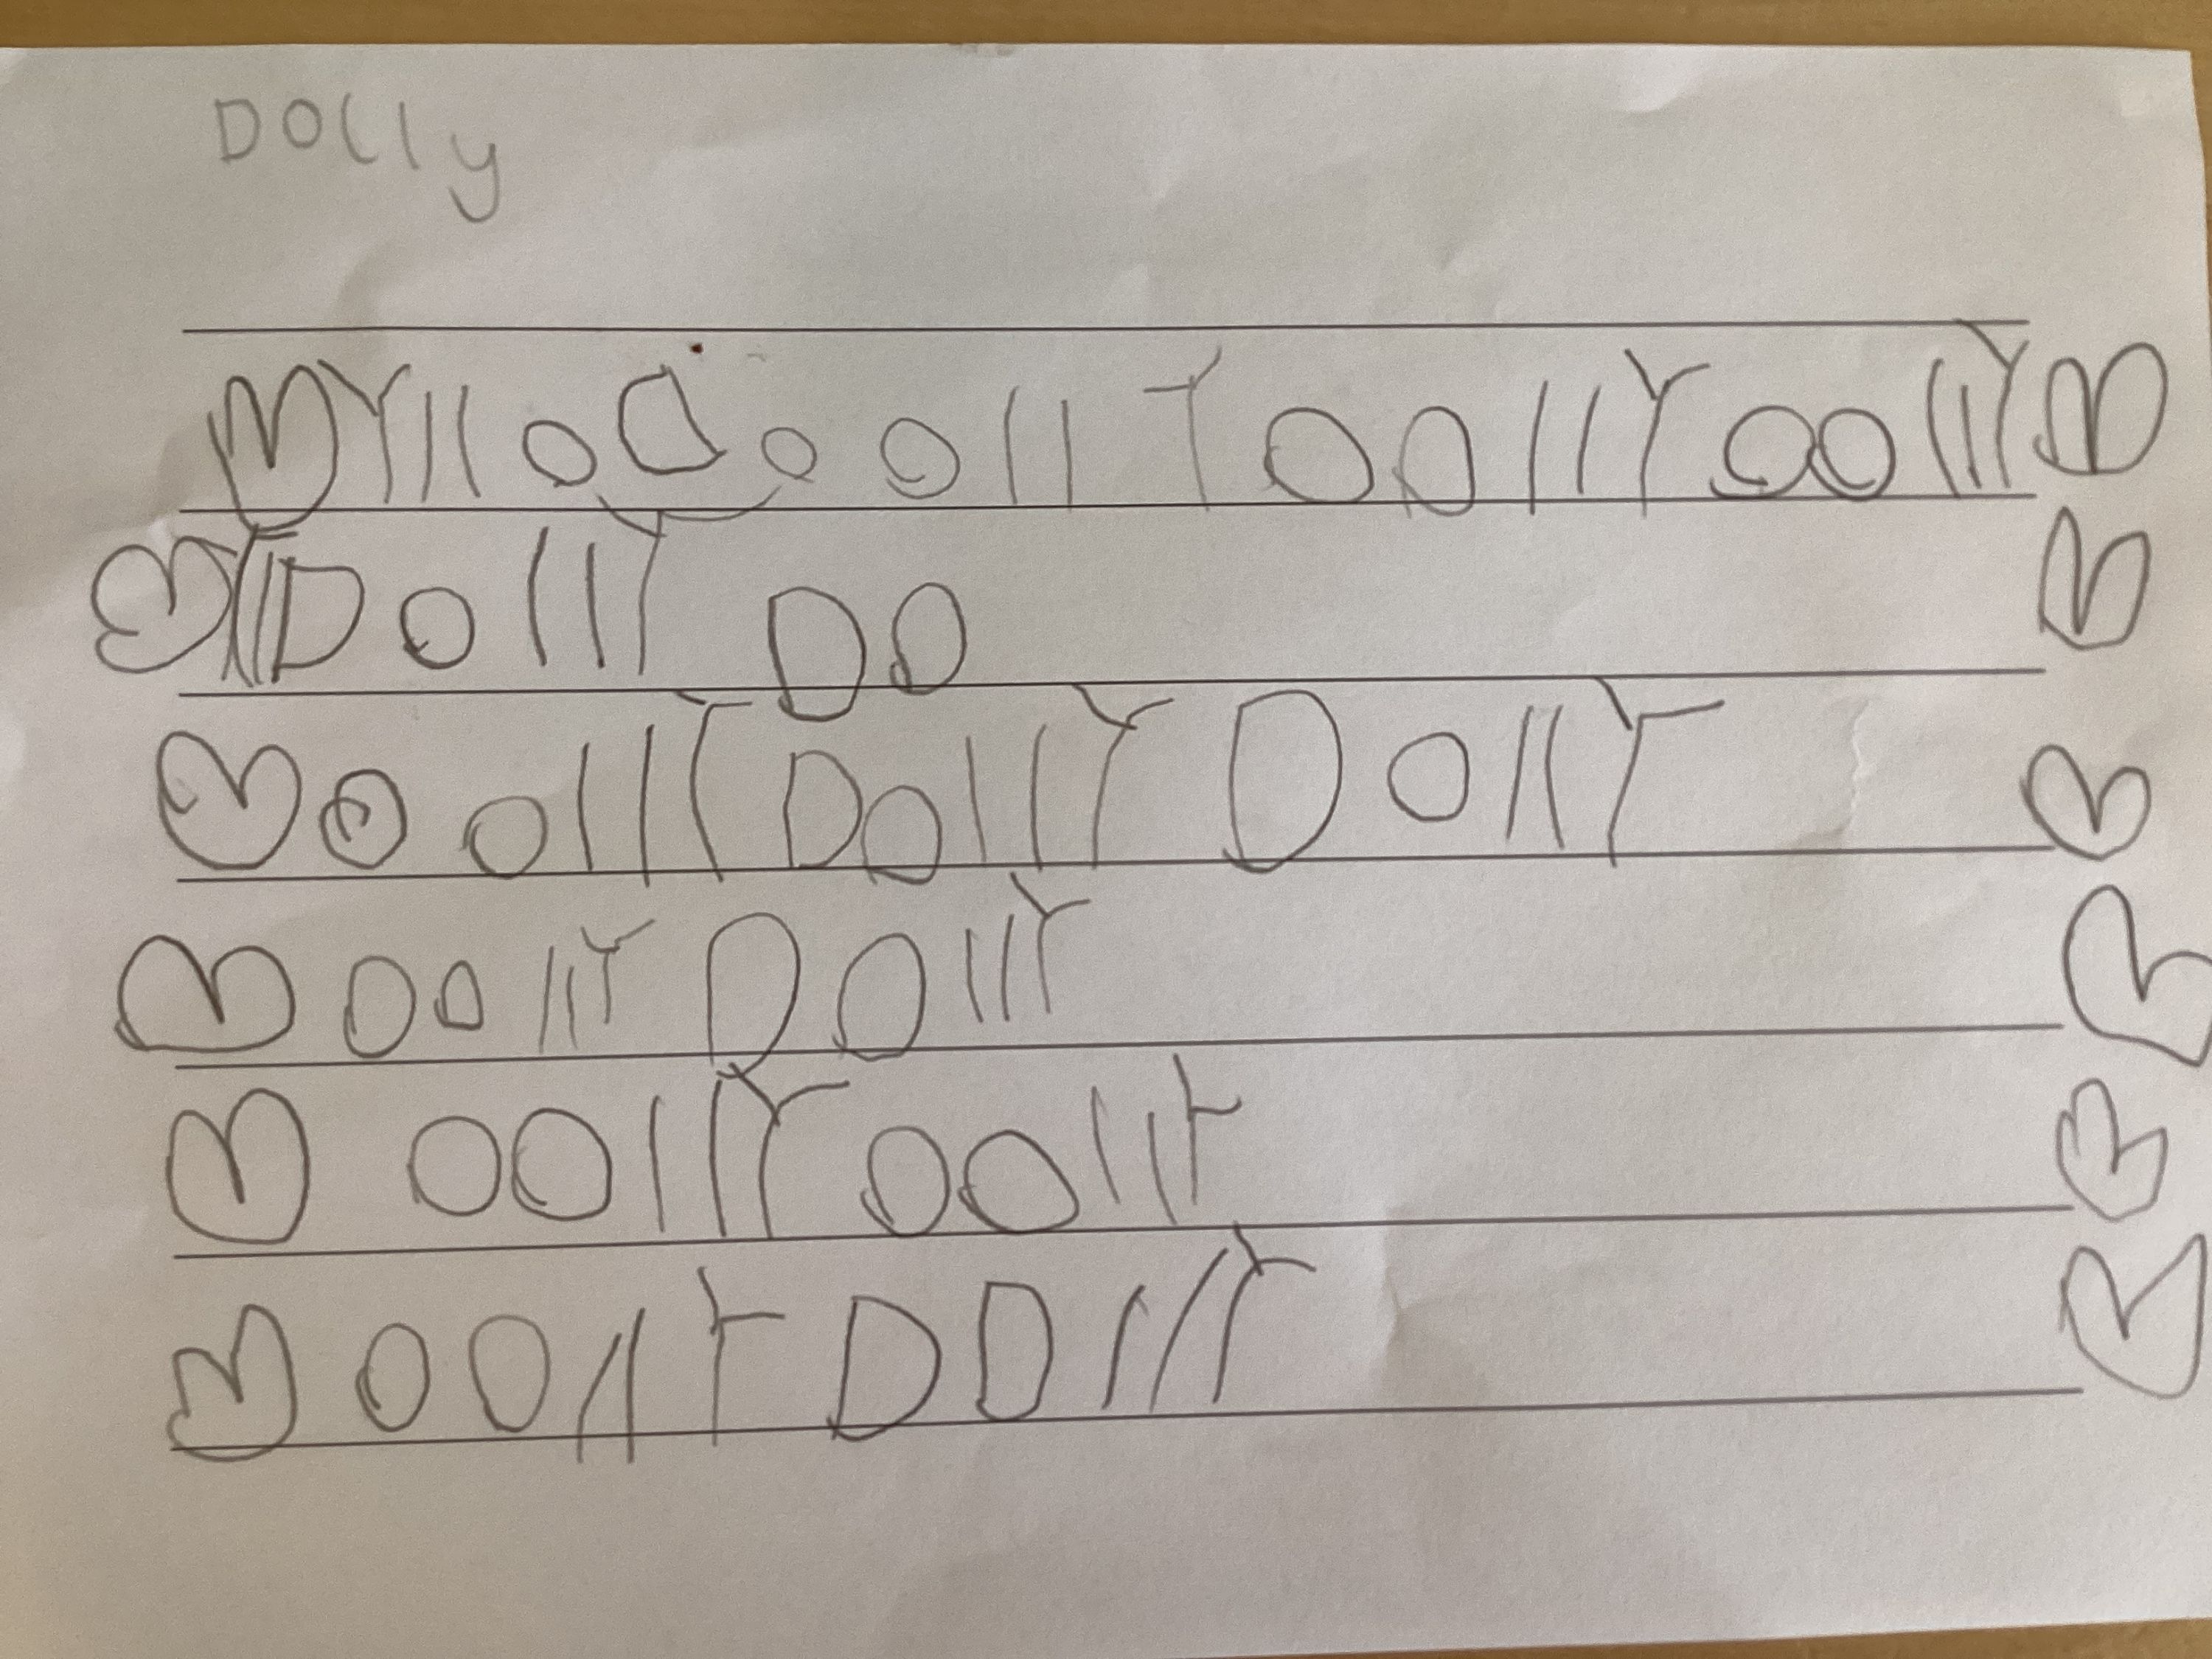 Dolly
YlloDoollYOOllYOOllY
YllDollY DO
OollY DollY DollY
OOllY DOllY
OOllY OOllY
OOllY DDllY